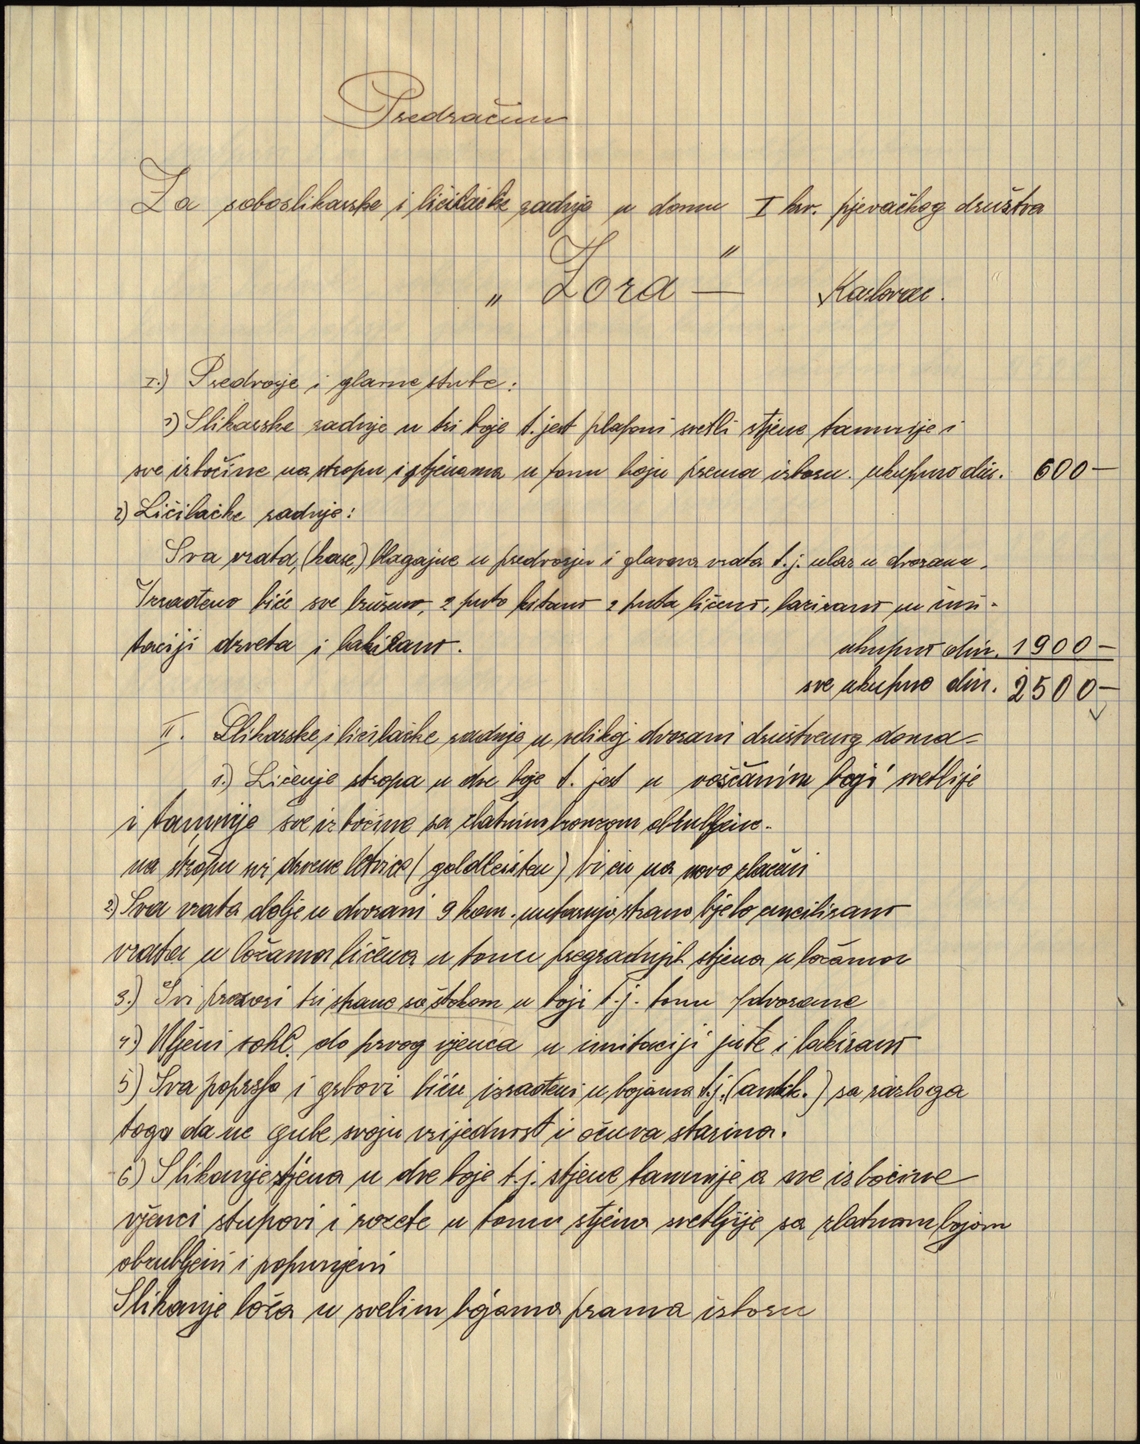 Predračun
Za soboslikarske i ličilačke radnje u domu I hrv. pjevačkog društva
„ Zora — " Karlovac.
I.) Predvorje i glavne stube:
1) Slikarske radnje u tri boje t. jest plafoni svetli stjene tamnije i
sve izbočine na stropu i stjenama u tonu boju prema izboru. ukupno din. 600—
2) Ličilačke radnje:
Sva vrata, (kase,) blagajne u predvorju i glavna vrata t. j. ulaz u dvoranu.
Izrađeno biće sve brušeno, 2 puta kitano 2 puta ličeno, lazirano u imi-
taciji drveta i lakirano. ukupno din. 1900—
sve ukupno din. 2500—
II. Slikarske i ličilačke radnje u velikoj dvorani društvenog doma=
1.) Ličenje stropa u dve boje t. jest u voščanim boji svetlije
i tamnije sve izbočine sa zlatnim bronzom obrubljene.
na stropu svi drvene letvice (goldleisten) bi će na novo zlaćeni
2) Sva vrata dolje u dvorani 9 kom. unutarnju stranu bjelo emeilirano
vrata u ložama ličena u tonu pregradnjih stjena u ložama
3.) Svi prozori tri strane sa štokom u boji t. j. tonu dvorane
4.) Uljeni sokl. do prvog vjenca u imitaciji jute i lakirano
5) Sva poprsja i grbovi biću izrađeni u bojama t.j. (antik.) sa razloga
toga da ne gube svoju vrijednost i očuva starina.
6) Slikanje stjena u dve boje t. j. stjene tamnije a sve izbočine
vjenci stupovi i rozete u tonu stjena svetlije sa zlatnom bojom
obrubljeni i popunjeni
Slikanje loža u svelim bojama prama izboru